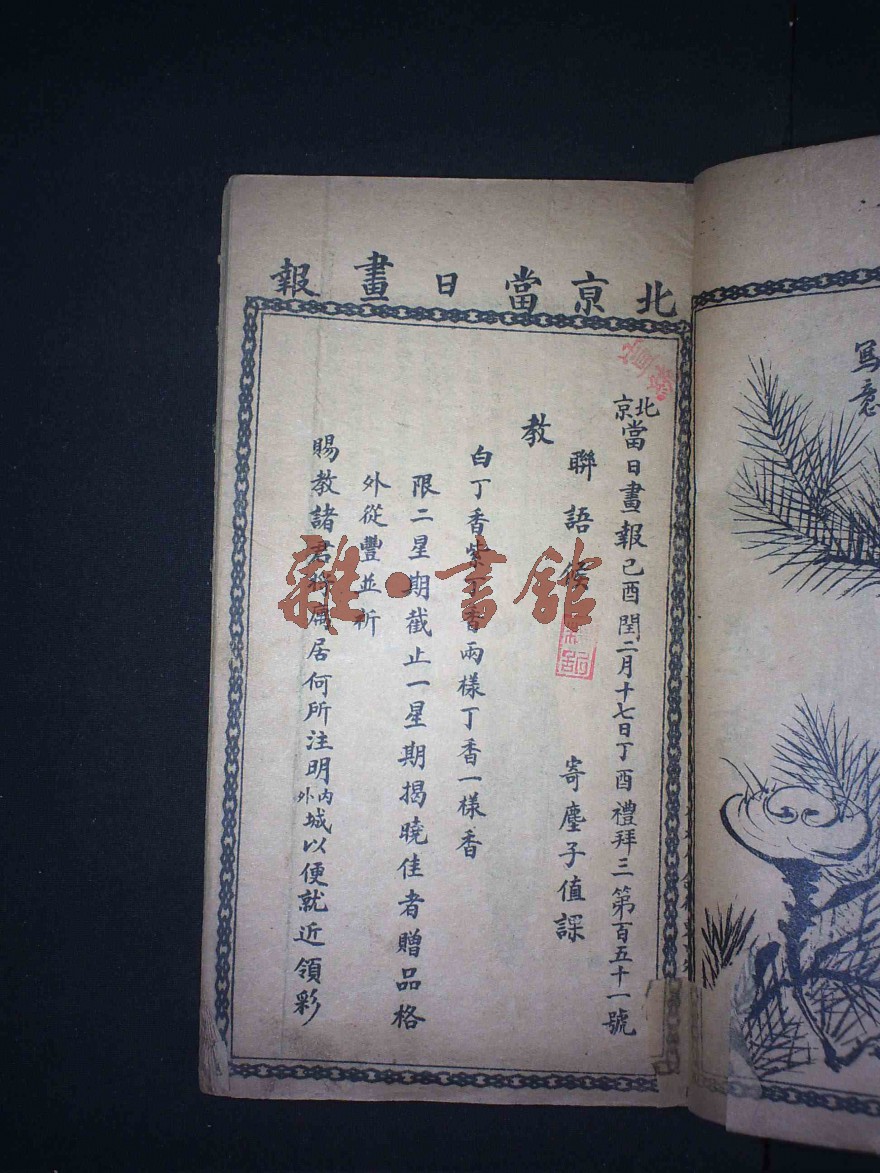 北京當日畫報
北京當日畫報己酉閏二月十七日丁酉禮拜三第百五十一號
聯語候 寄塵子值課
教
白丁香紫丁香兩樣丁香一樣香
限二星期截止一星期揭曉佳者贈品格
外從豐並祈
賜教諸君將寓居何所注明內外城以便就近領彩
寫意
雜·書館